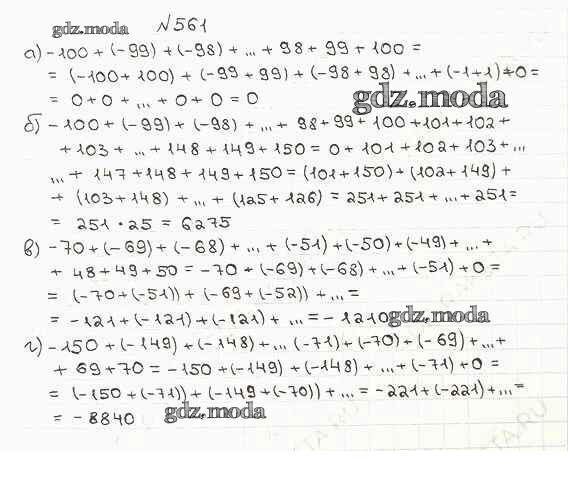 gdz.moda №561
а) -100 + (-99) + (-98) + ... + 98 + 99 + 100 =
= (-100 + 100) + (-99 + 99) + (-98 + 98) + ... + (-1+1) + 0 =
= 0 + 0 + ... + 0 + 0 = 0
gdz.moda
б) -100 + (-99) + (-98) + ... + 98 + 99 + 100 + 101 + 102 +
+ 103 + ... + 148 + 149 + 150 = 0 + 101 + 102 + 103 + ...
... + 147 + 148 + 149 + 150 = (101 + 150) + (102 + 149) +
+ (103 + 148) + ... + (125 + 126) = 251 + 251 + ... + 251 =
= 251 · 25 = 6275
в) -70 + (-69) + (-68) + ... + (-51) + (-50) + (-49) + ... +
+ 48 + 49 + 50 = -70 + (-69) + (-68) + ... + (-51) + 0 =
= (-70 + (-51)) + (-69 + (-52)) + ... =
= -121 + (-121) + (-121) + ... = -1210
gdz.moda
г) -150 + (-149) + (-148) + ... (-71) + (-70) + (-69) + ... +
+ 69 + 70 = -150 + (-149) + (-148) + ... + (-71) + 0 =
= (-150 + (-71)) + (-149 + (-70)) + ... = -221 + (-221) + ... =
= -8840
gdz.moda